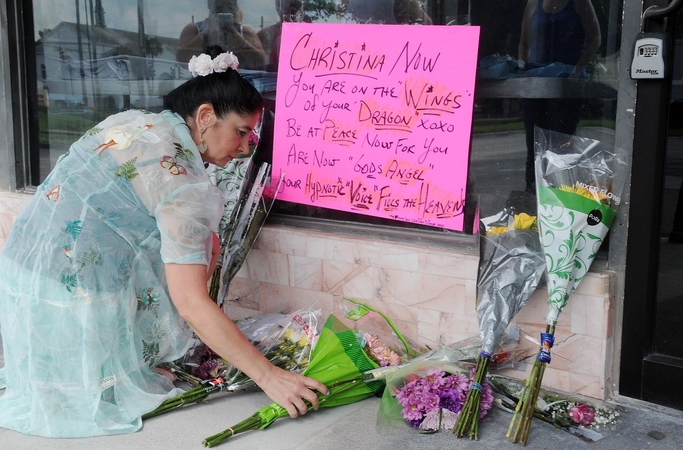 CHRISTINA NOW
YOU ARE ON THE "WINGS"
OF YOUR "DRAGON" XOXO
BE AT PEACE NOW FOR YOU
ARE NOW "GODS ANGEL"
YOUR HYPNOTIC "VOICE" FILLS THE HEAVENS
Master
MIXED